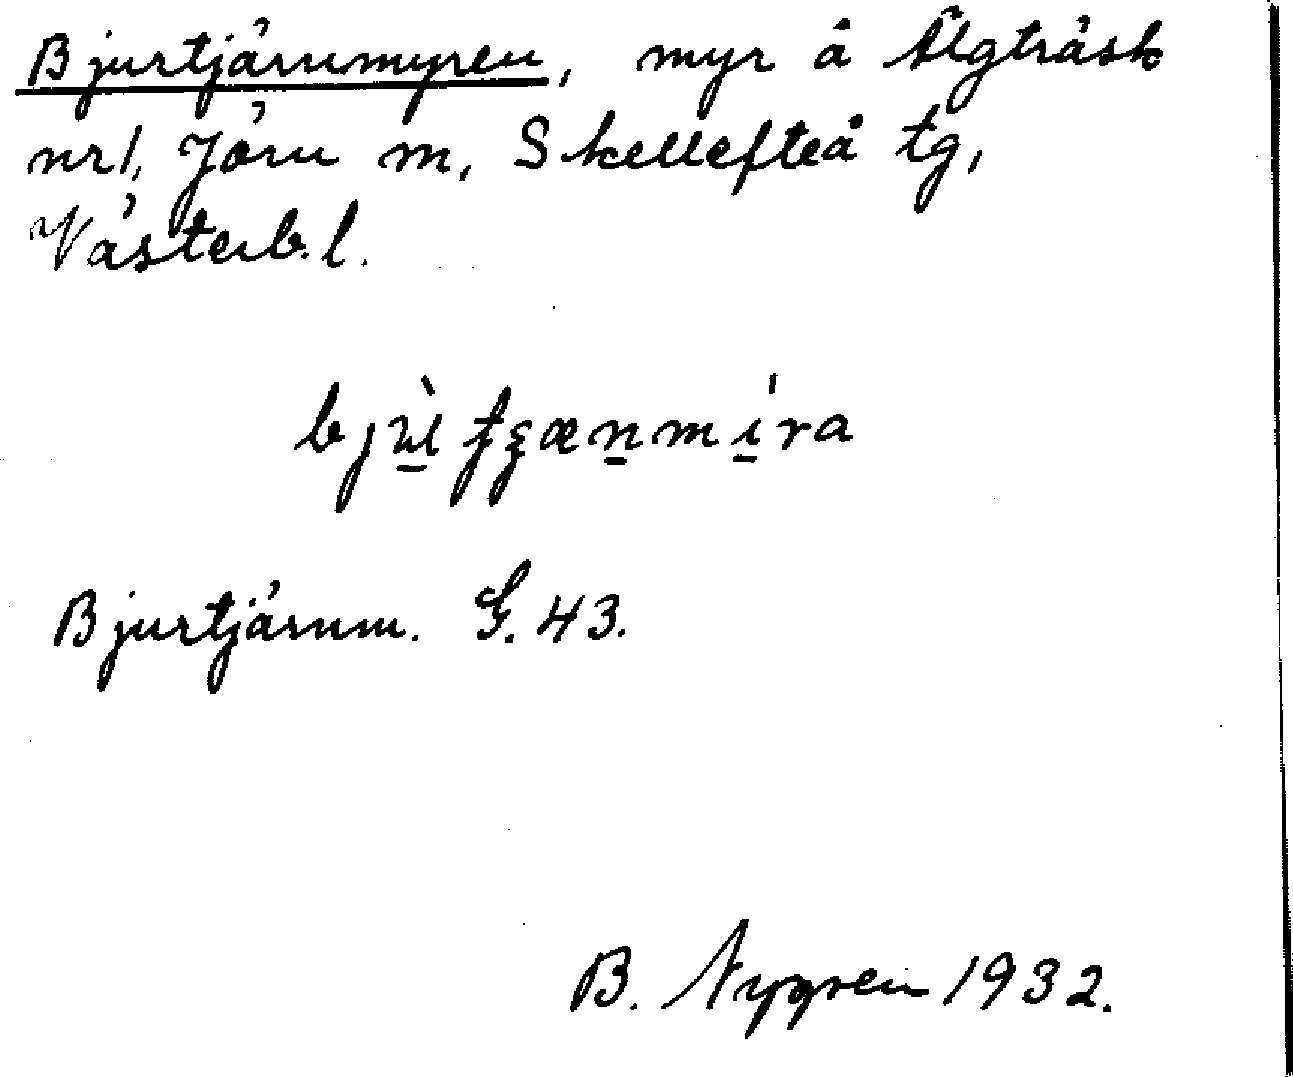 Bjurtjärnmyren, myr å Älgträsk
nr 1, Jörn sn, Skellefteå tg,
Västerb. l.
Bjurtjärnm. G. 43.
B. Nygren 1932.